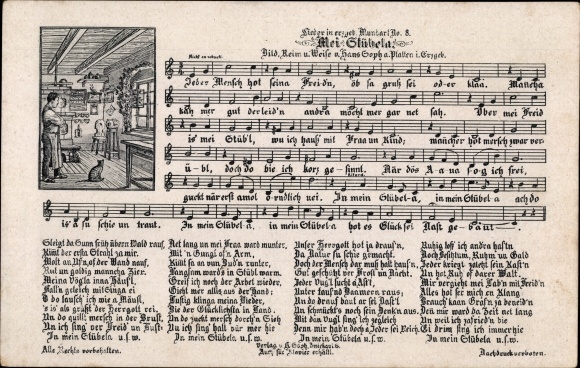 Lieder in erzgeb. Mundart No. 8.
Mei Stübela.
Bild, Reim u. Weise v. Hans Soph a. Platten i. Erzgeb.
Nicht zu schnell.
Jeder Mensch hot seina Freid'n, ob sa gruß sei od-er klaa. Mancha
kah mer gut derleid'n andra möcht mer gar net sah. Über mei Freid
is' mei Stüb'l, wu ich hauß' mit Fraa un Kind; mancher hot mersch zwar ver-
ü-bl, doch do bie ich korz ge-sinnt. När dös A a ua Fog ich frei,
guckt när erst amol ordnlich nei. In mein Stübel-a, in mein Stübel-a ach do
is a su schie un traut. In mein Stübel-a, in mein Stübel-a hot es Glück sei Nast ge-baut.
Steigt da Sunn früh übern Wald rauf,
Kimt der erste Strahl za mir.
Molt an W'n, of der Wand nauf,
Rut un goldig mannicha Zier.
Meina Vögla inna Häus'l,
Falln gleich mit Singa ei
O do lausch' ich wie a Mäusl,
's is' als grüßt der Herrgott rei.
Un do quillt mersch in der Brust,
Un ich sing' ver Freid' un Lust:
In mein Stübela u.s.w.
Net lang un mei Fraa ward munter,
Mit'n Gung'l of'n Arm,
Kimt aa nu vun Bud'n runter,
Langsam ward's in Stübl warm.
Greif ich noch der Arbet wieder,
Gieht mer alles aus der Hand;
Lustig klinga meina Lieder,
Bie der Glücklichsta in Land.
Un do zuckt mersch dorch'n Sieh
Un ich sing' halt vür mer hie
In mein Stübela u.s.w.
Unser Herrgott hot ja drauß'n,
Da Natur su schie gemacht.
Doch der Mensch dar muß halt hauß'n,
Gut geschützt ver Frost un Nacht.
Jeder Vug'l sucht a Astl,
Unter tausnd Baamern raus;
Un do draus baut ar sei Nast'l
Un schmückt's noch sein Denk'n aus.
Mit dan Vug'l sing' ich zegleich
Denn mir hab'n doch a Jeder sei Reich.
In mein Stübela u.s.w.
Ruhig loß' ich andra hast'n
Noch Besitztum, Ruhm un Gald
Jeder kriegt zeletzt sein Kast'n
Un hot Ruh of darer Walt.
Mir vergieht mei Lab'n mit Freid'n
Alles hot ser mich en Klang.
Brauch kaan Graf'n ze beneid'n
Denn mir ward da Zeit net lang
Un weil ich zefried'n bi,
Ti drim sing ich immer hie
In mein Stübela u.s.w.
Alle Rechte vorbehalten.
Verlag v. H. Soph, Zwickau i. S.
Auch für Klavier erhältl.
Nachdruck verboten.